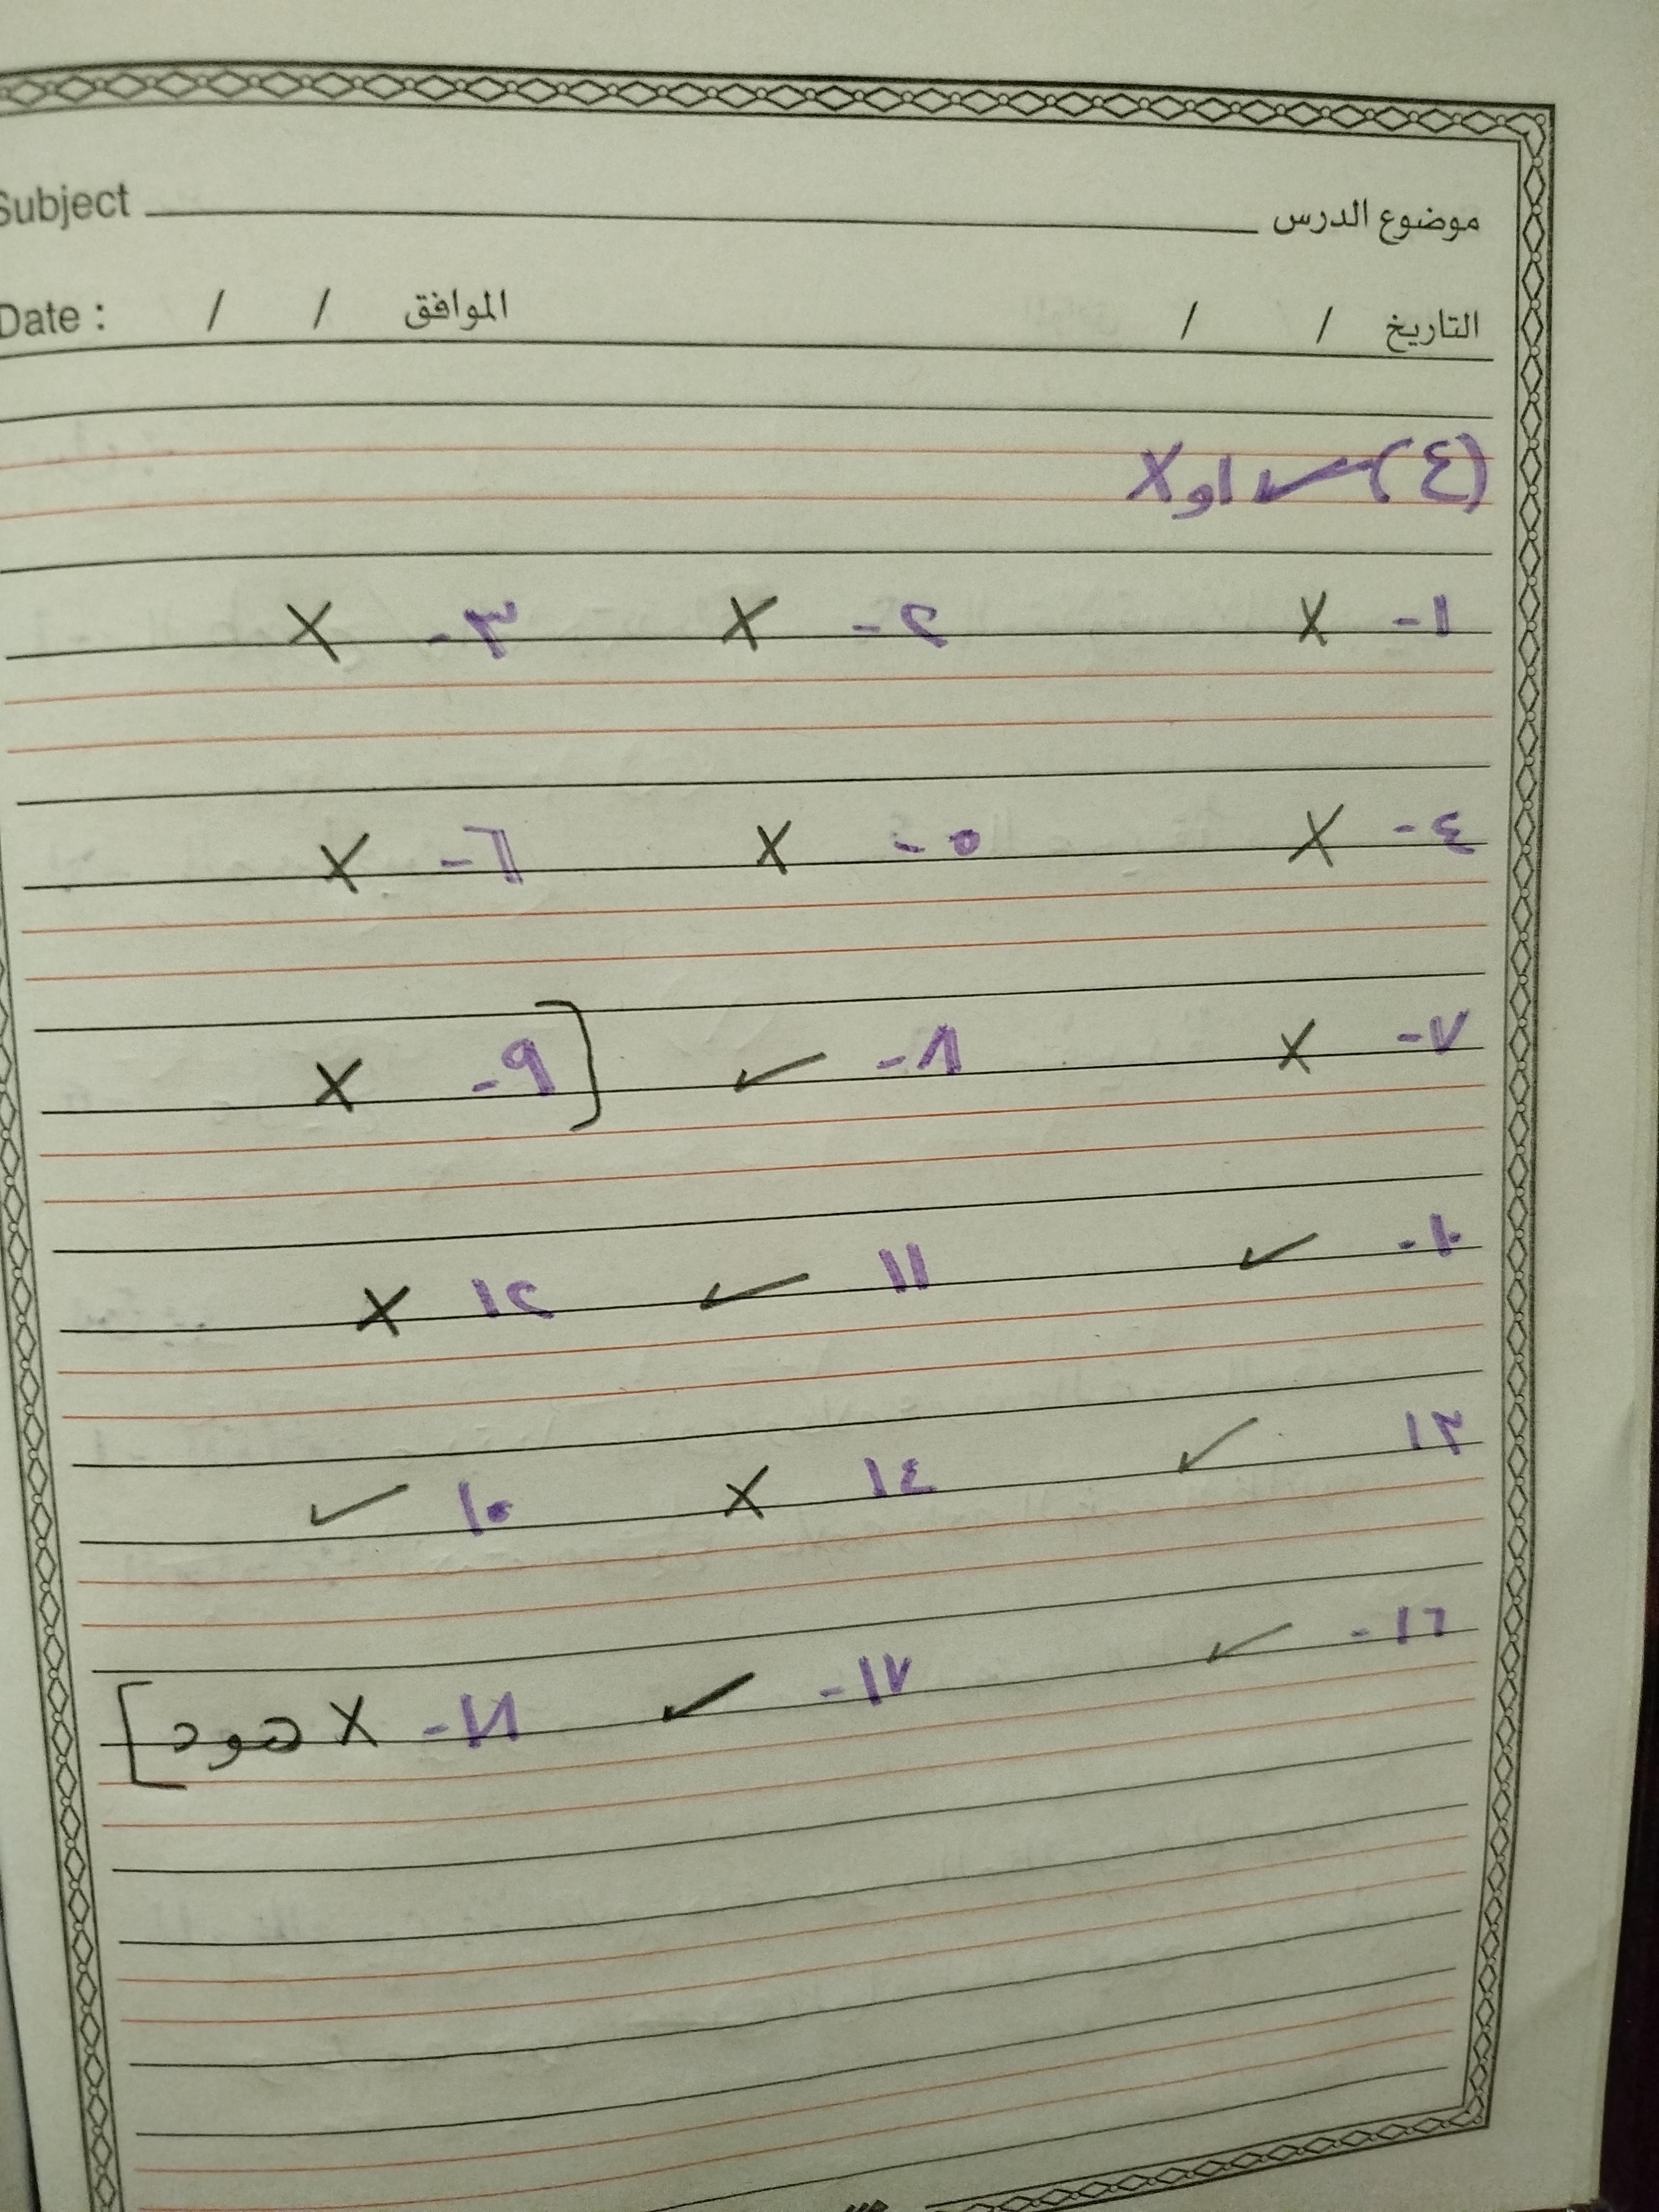 موضوع الدرس Subject
التاريخ / / الموافق / / Date :
(٤) ✓ او X
١- X ٢- X ٣- X
٤- X ٥- X ٦- X
٧- X ٨- ✓ [٩- X
١٠- ✓ ١١ ✓ ١٢ X
١٣ ✓ ١٤ X ١٥ ✓
١٦- ✓ ١٧- ✓ ١٨- X هود]